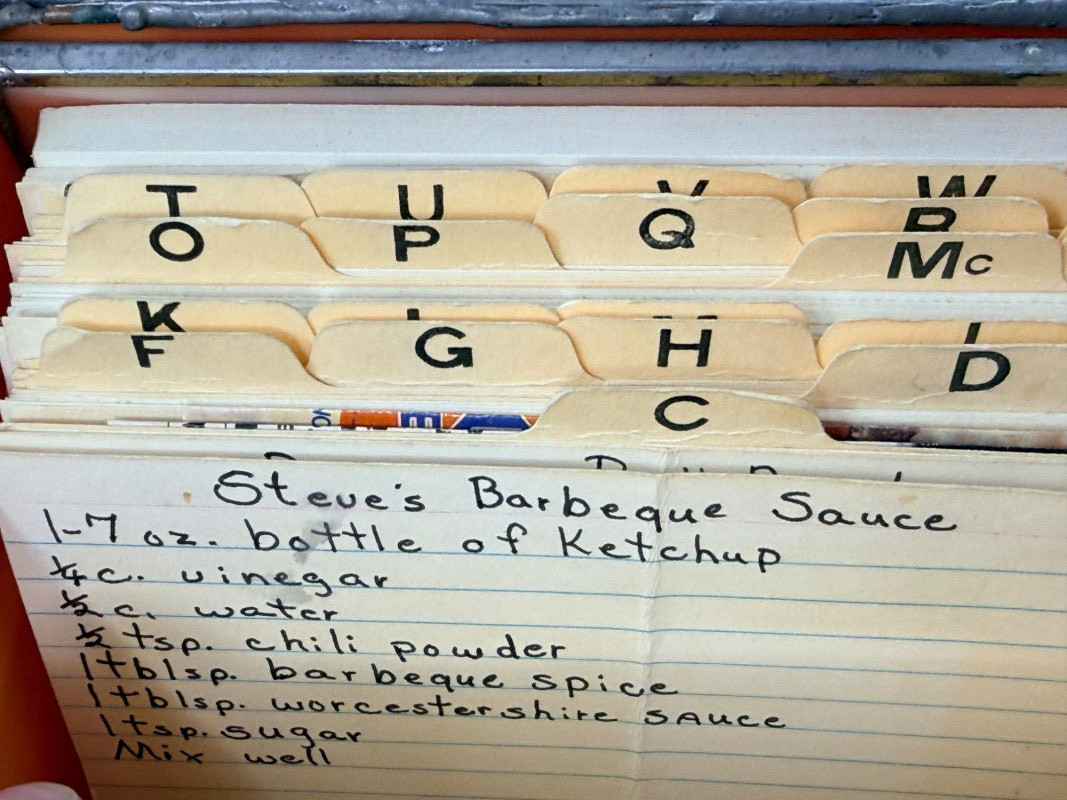 T U V W
O P Q R
Mc
K
F G H I
D
C
Steve's Barbeque Sauce
1-7 oz. bottle of Ketchup
¼ c. vinegar
½ c. water
½ tsp. chili powder
1 tblsp. barbeque spice
1 tblsp. worcestershire sauce
1 tsp. sugar
Mix well